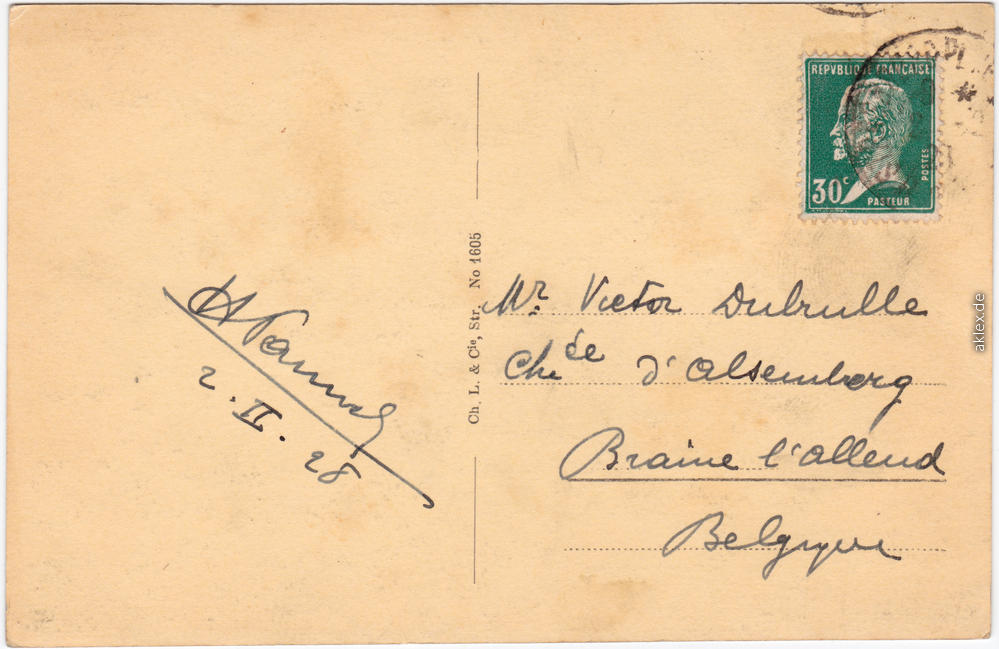 REPVBLIQUE FRANÇAISE
POSTES
30c
PASTEUR
2. II. 28
Ch. L. & Cie, Str. No 1605
Mr. Victor Dubrulle
Chée d'Alsemberg
Braine l'Alleud
Belgique
aklex.de